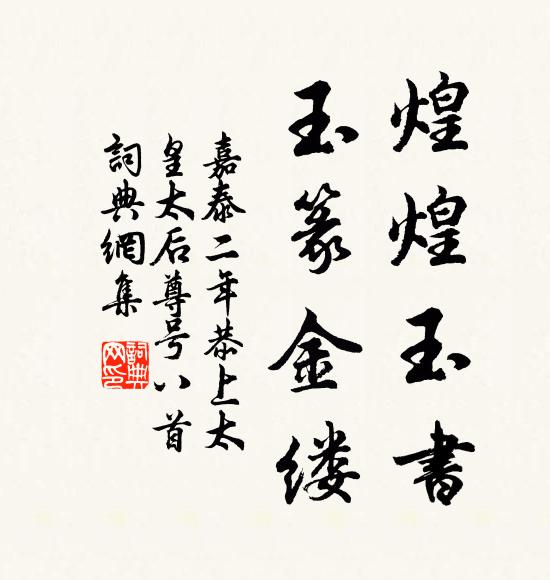 煌煌玉書
玉篆金缕
嘉泰二年恭上太
皇太后尊号八首
詞典網集
詞典網印